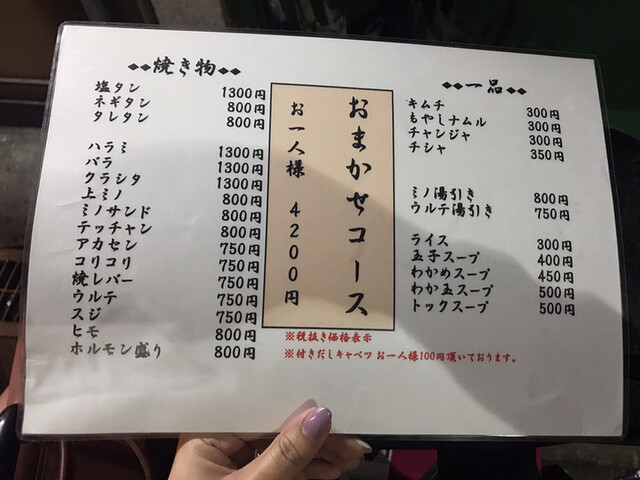 ◆◆焼き物◆◆
塩タン 1300円
ネギタン 800円
タレタン 800円
ハラミ 1300円
バラ 1300円
クラシタ 1300円
上ミノ 800円
ミノサンド 800円
テッチャン 800円
アカセン 750円
コリコリ 750円
焼レバー 750円
ウルテ 750円
スジ 750円
ヒモ 800円
ホルモン盛り 800円
おまかせコース
お一人様 4200円
◆◆一品◆◆
キムチ 300円
もやしナムル 300円
チャンジャ 300円
チシャ 350円
ミノ湯引き 800円
ウルテ湯引き 750円
ライス 300円
玉子スープ 400円
わかめスープ 450円
わか玉スープ 500円
トックスープ 500円
※税抜き価格表示
※付きだしキャベツ お一人様100円頂いております。